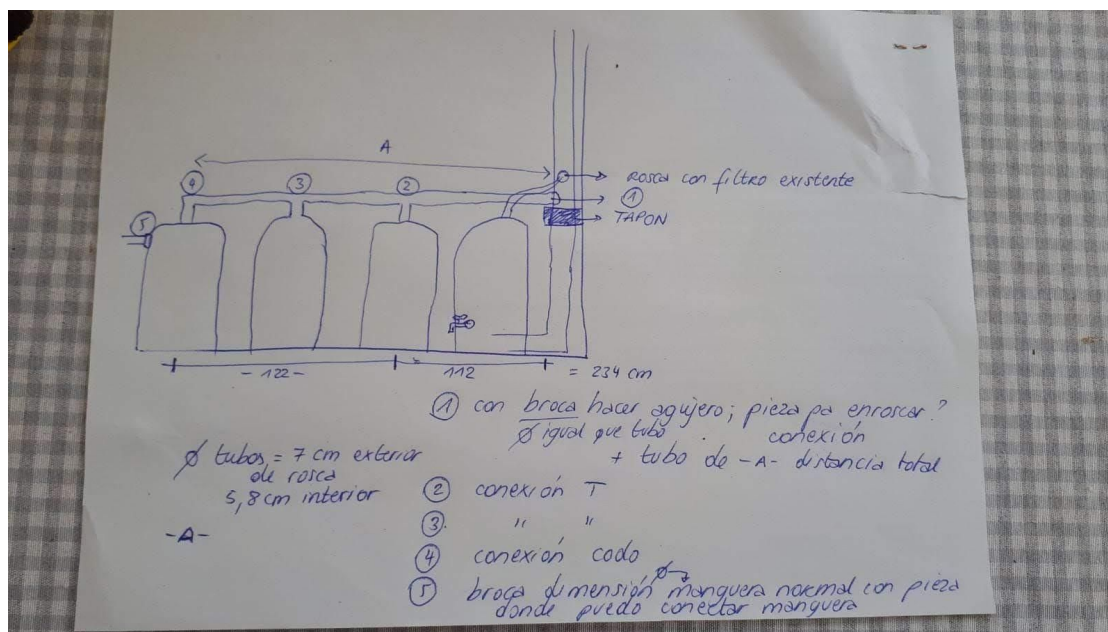 A
④
③
②
⑤
Rosca con filtro existente
①
TAPON
- 122 -
112
= 234 cm
① con broca hacer agujero; pieza pa enroscar?
Ø igual que tubo . conexión
+ tubo de -A- distancia total
Ø tubos = 7 cm exterior
de rosca
5,8 cm interior
-A-
② conexión T
③. " "
④ conexión codo
⑤ broca dimensión Ø manguera normal con pieza
donde puedo conectar manguera